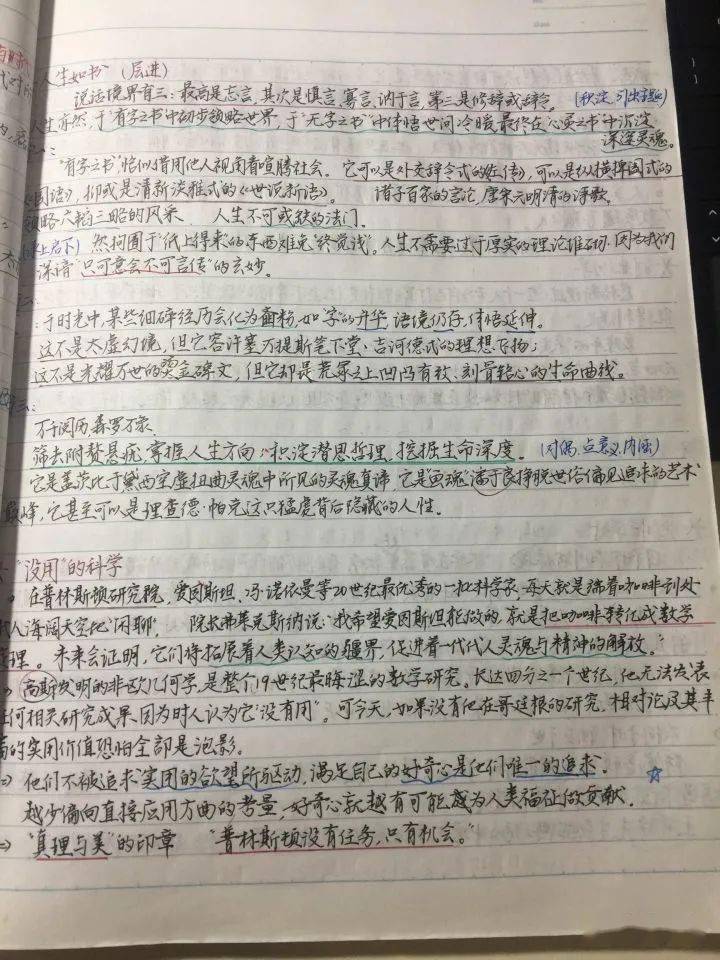 人生如书 (层进)
说话境界有三：最高是忘言，其次是慎言、寡言、讷于言，第三是修辞或辞令。 (积淀，引出话题)
人生亦然，于"有字之书"中初步领略世界，于"无字之书"中体悟世间冷暖，最终在"心灵之书"中沉淀
深邃灵魂。
"有字之书"恰似借用他人视阈看喧腾社会。它可以是外交辞令式的《左传》，可以是纵横捭阖式的
《国语》，抑或是清新淡雅式的《世说新语》。 诸子百家的言论，唐宋元明清的诗歌，
领略六韬三略的风采、 人生不可或缺的法门。
(承上启下) 然拘囿于"纸上得来"的东西难免"终觉浅"。人生不需要过于厚实的理论堆砌，因为我们
深谙"只可意会不可言传"的玄妙。
于时光中，某些细碎经历会化为齑粉，如"字"的升华，语境仍存，体悟延伸。
这不是太虚幻境，但它容许塞万提斯笔下堂·吉诃德式的理想飞扬；
这不是光耀万世的烫金碑文，但它却是荒冢之上凹凸有致、刻骨铭心的生命曲线。
万千阅历，森罗万象、
筛去附赘悬疣，掌握人生方向；积淀潜思哲理，挖掘生命深度。 (对偶，点意义、内涵)
它是盖茨比于黛西空虚扭曲灵魂中所见的灵魂真谛，它是"画魂"潘于良挣脱世俗偏见追求的艺术
巅峰，它甚至可以是理查德·帕克这只猛虎背后隐藏的人性。
"没用"的科学
在普林斯顿研究院，爱因斯坦、冯·诺依曼等20世纪最优秀的一批科学家，每天就是端着咖啡到处
找人海阔天空地"闲聊"， 院长弗莱克斯纳说："我希望爱因斯坦能做的，就是把咖啡转化成数学
定理。未来会证明，它们将拓展着人类认知的疆界，促进着一代代人灵魂与精神的解放。"
⇒ 高斯发明的非欧几何学，是整个19世纪最晦涩的数学研究。长达四分之一个世纪，他无法发表
任何相关研究成果，因为时人认为它"没有用"。可今天，如果没有他在哥廷根的研究，相对论及其丰
富的实用价值恐怕全部是泡影。
⇒ 他们不被追求实用的欲望所驱动，满足自己的好奇心是他们唯一的追求。 ☆
越少偏向直接应用方面的考量，好奇心就越有可能越为人类福祉做贡献。
⇒ "真理与美"的印章 "普林斯顿没有任务，只有机会。"